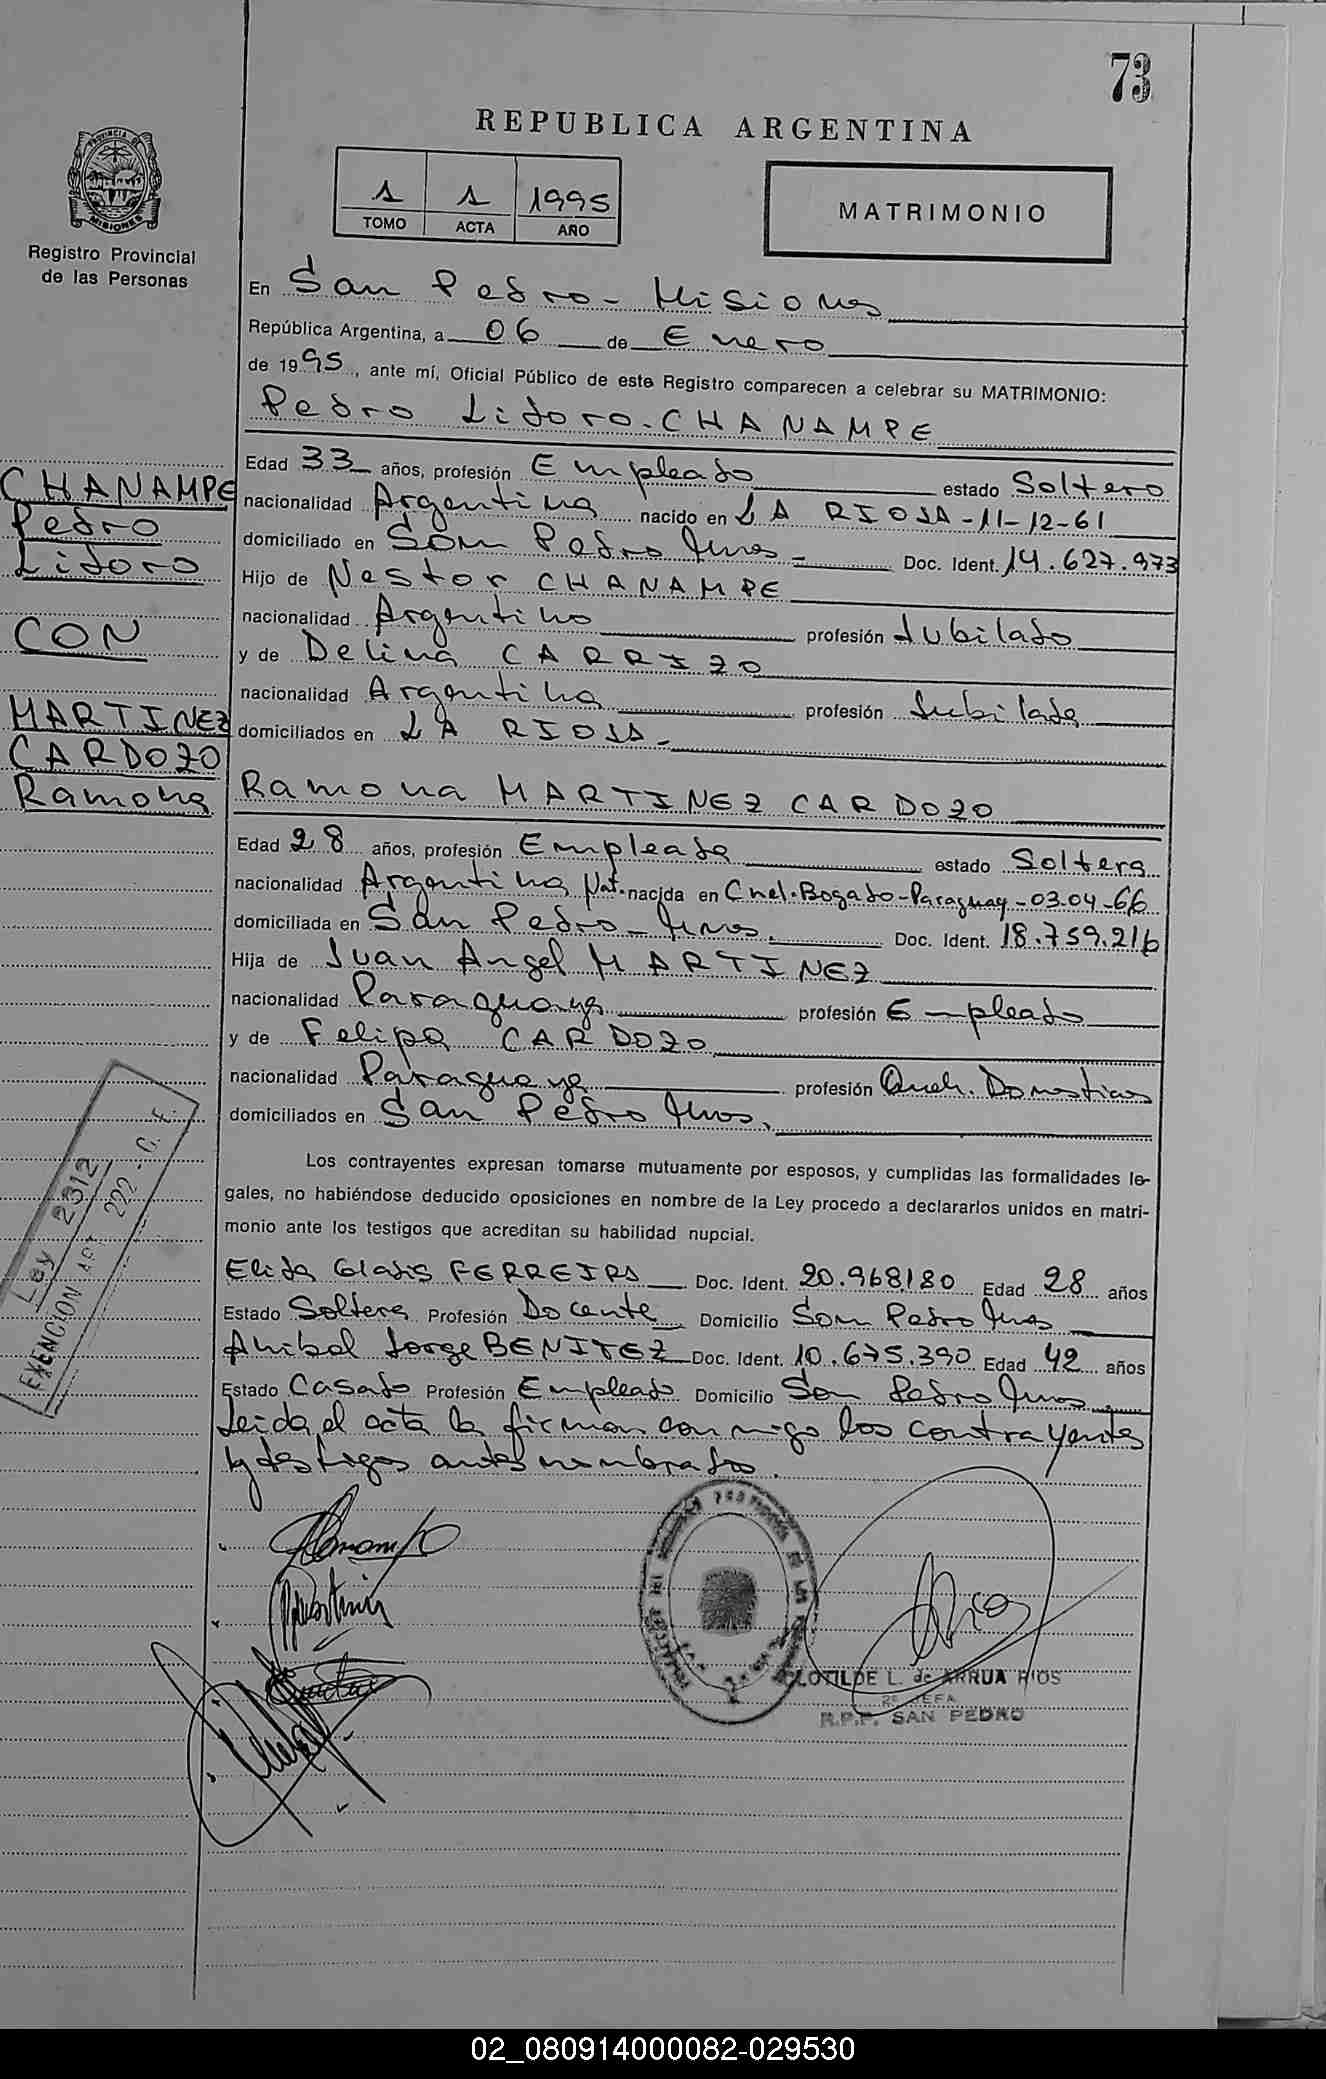 73
REPUBLICA ARGENTINA
PROVINCIA DE
MISIONES
Registro Provincial
de las Personas
1 1 1995
TOMO ACTA AÑO
MATRIMONIO
En San Pedro - Misiones
República Argentina, a 06 de Enero
de 1995, ante mí, Oficial Público de este Registro comparecen a celebrar su MATRIMONIO:
Pedro Lidoro. CHANAMPE
Edad 33 años, profesión Empleado estado Soltero
nacionalidad Argentina nacido en LA RIOJA - 11-12-61
domiciliado en San Pedro Mnes - Doc. Ident. 14.627.973
Hijo de Nestor CHANAMPE
nacionalidad Argentino profesión Jubilado
y de Delina CARRIZO
nacionalidad Argentina profesión Jubilada
domiciliados en LA RIOJA -
Ramona MARTINEZ CARDOZO
Edad 28 años, profesión Empleada estado Soltera
nacionalidad Argentina Nat. nacida en Cnel. Bogado - Paraguay - 03-04-66
domiciliada en San Pedro - Mnes. Doc. Ident. 18.759.216
Hija de Juan Angel MARTINEZ
nacionalidad Paraguaya profesión Empleado
y de Felipa CARDOZO
nacionalidad Paraguaya profesión Queh. Domesticos
domiciliados en San Pedro Mnes.
CHANAMPE
Pedro
Lidoro
CON
MARTINEZ
CARDOZO
Ramona
Ley 2312
EXENCION ART 222 - C. F.
Los contrayentes expresan tomarse mutuamente por esposos, y cumplidas las formalidades le-
gales, no habiéndose deducido oposiciones en nombre de la Ley procedo a declararlos unidos en matri-
monio ante los testigos que acreditan su habilidad nupcial.
Elida Gladis FERREIRA Doc. Ident. 20.968.180 Edad 28 años
Estado Soltera Profesión Docente Domicilio San Pedro Mnes
Anibal Jorge BENITEZ Doc. Ident. 10.675.390 Edad 42 años
Estado Casado Profesión Empleado Domicilio San Pedro Mnes.
Leida el acta la firman conmigo los contrayentes
y testigos antes nombrados.
CLOTILDE L. de ARRUA RIOS
2ª JEFA
R.P.P. SAN PEDRO
02_080914000082-029530